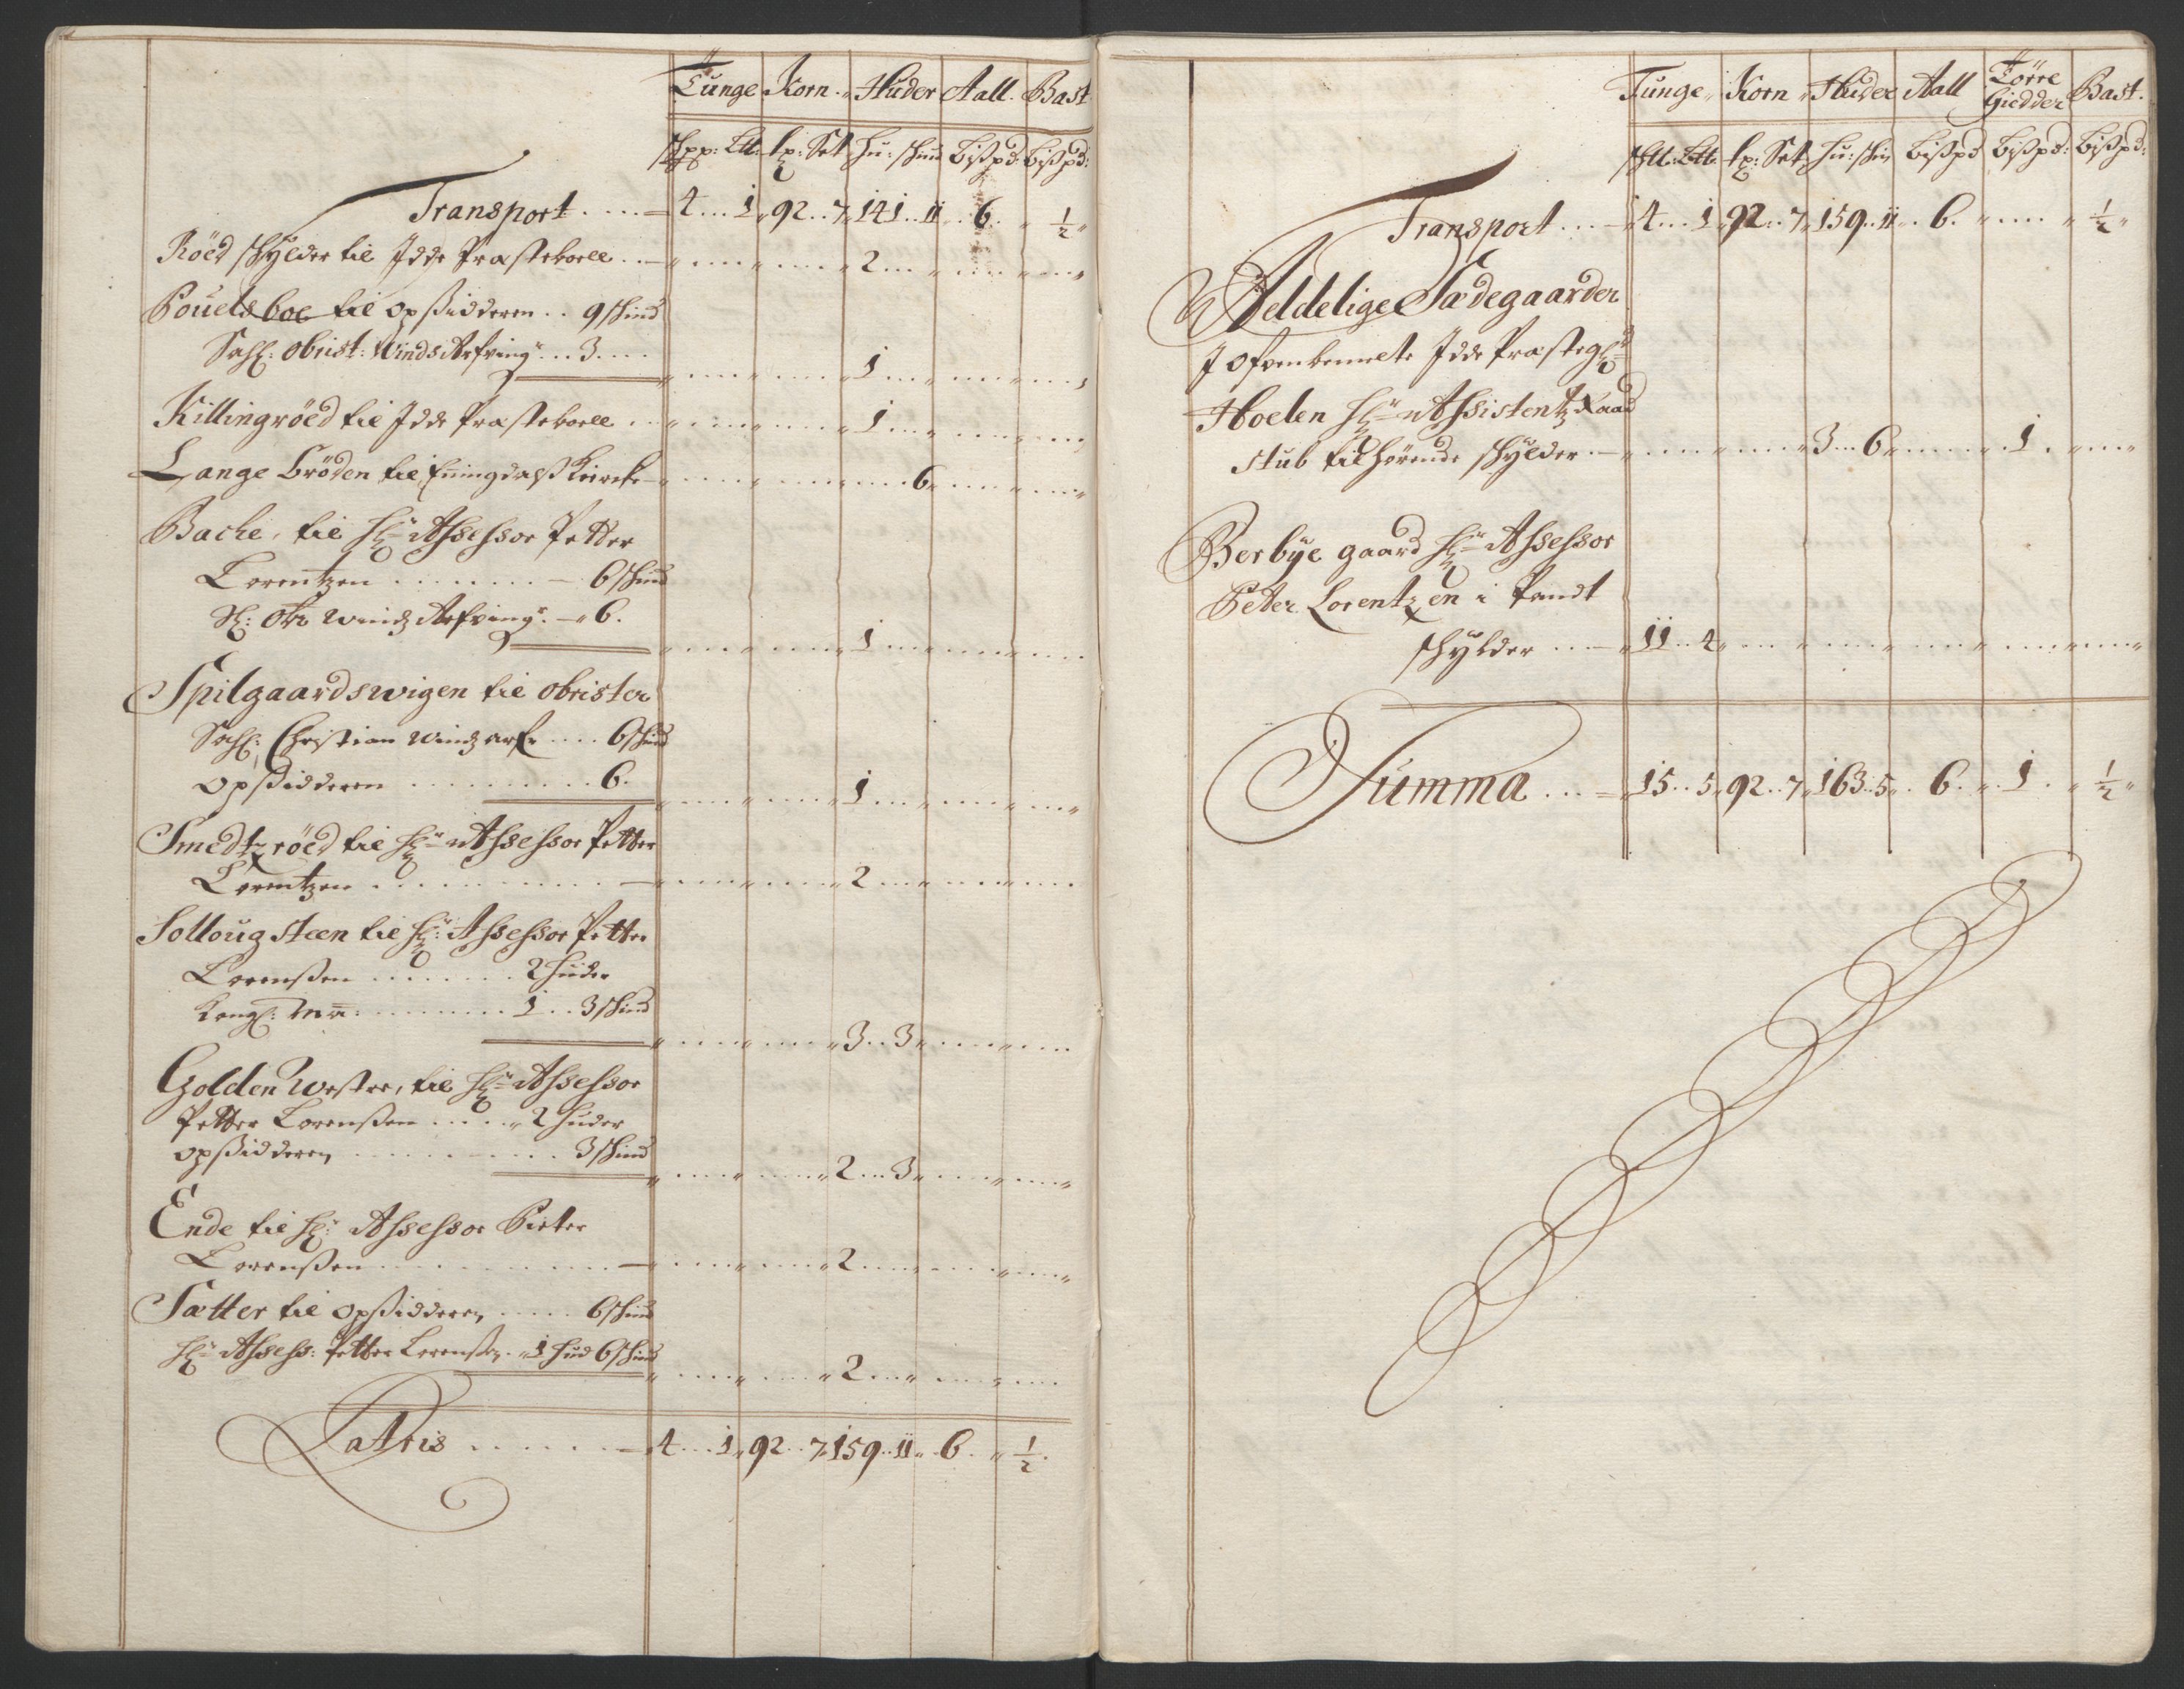 Tunge Korn Huder Aall. Bast
Schpp: Ltt: tp: Set Hu: schind bißpd: bißpd:
Transport . . . . 4 . . . 1 „ 92 . . 7 „ 141 . . 11 . . 6 . „ ½ „
Röed schylder til Idde Præsteboell . . . 2
Pouelsboe til opsidderen . . 9 schind
Sahl: obrist: Winds Arfving: . . . 3 . . . .
1
Killingröed til Idde Præsteboell . . 1
Lange Bröden til Enningdalß Kircke 6
Bache, til Hr: Assessor Petter
Lorentzen . . . . . . . . 6 schind
Sl: Obr: Windz Arfving: 6.
1
Spilgaardswigen til obrister
Sahl: Christian Windz arf: . . . . 6 schind
opsidderen . . . . . . . . . 6.
1
Smedtzröed til Hr: Assessor Petter
Lorentzen . . . . . . . . . . 2
Sollougsteen til Hr: Assessor Petter
Lorenßen . . . . . . . 2 huder
Kongl: Ma: . . . . . . . . 1 . . 3 schind
3 . . 3
Golden Wester, til Hr: Assessor
Petter Lorenßen . . . . . 2 huder
opsidderen . . . . . . . . . 3 schind
2 . . . 3
Ende til Hr: Assessor Pieter
Lorenßen . . . . . . . . . . 2
Sætter til opsidderen . . . . . 6 schind
Hr: Assess: Petter Lorenßen . 1 hud 6 schind
2
Latris . . . . . . 4 . . . 1 „ 92 . . 7 „ 159 . . 11 „ . 6 . „ ½ .
Tunge Korn Huder Aall Törre Giedder Bast.
Schtt: Ltt: tp: Set hu: schin bißpd bißpd: bißpd:
Transport . . . 4 . . . 1 „ 92 . . 7 „ 159 . . 11 „ . 6 . „ . . . . „ ½ „
Adelige Sædegaarder
I ofvenbemelte Idde Præstegl:
Hoelen Hr: Assistentz Raad
Stub tilhörende schylder . . . 3 . . . 6 . . . 1 .
Berbye gaard Hr: Assessor
Peter Lorentzen i Pandt
schylder . . . 11 . . 4
Summa . . . 15 . . 5 „ 92 . . 7 „ 163 . . 5 „ . 6 . „ . 1 . „ ½ „